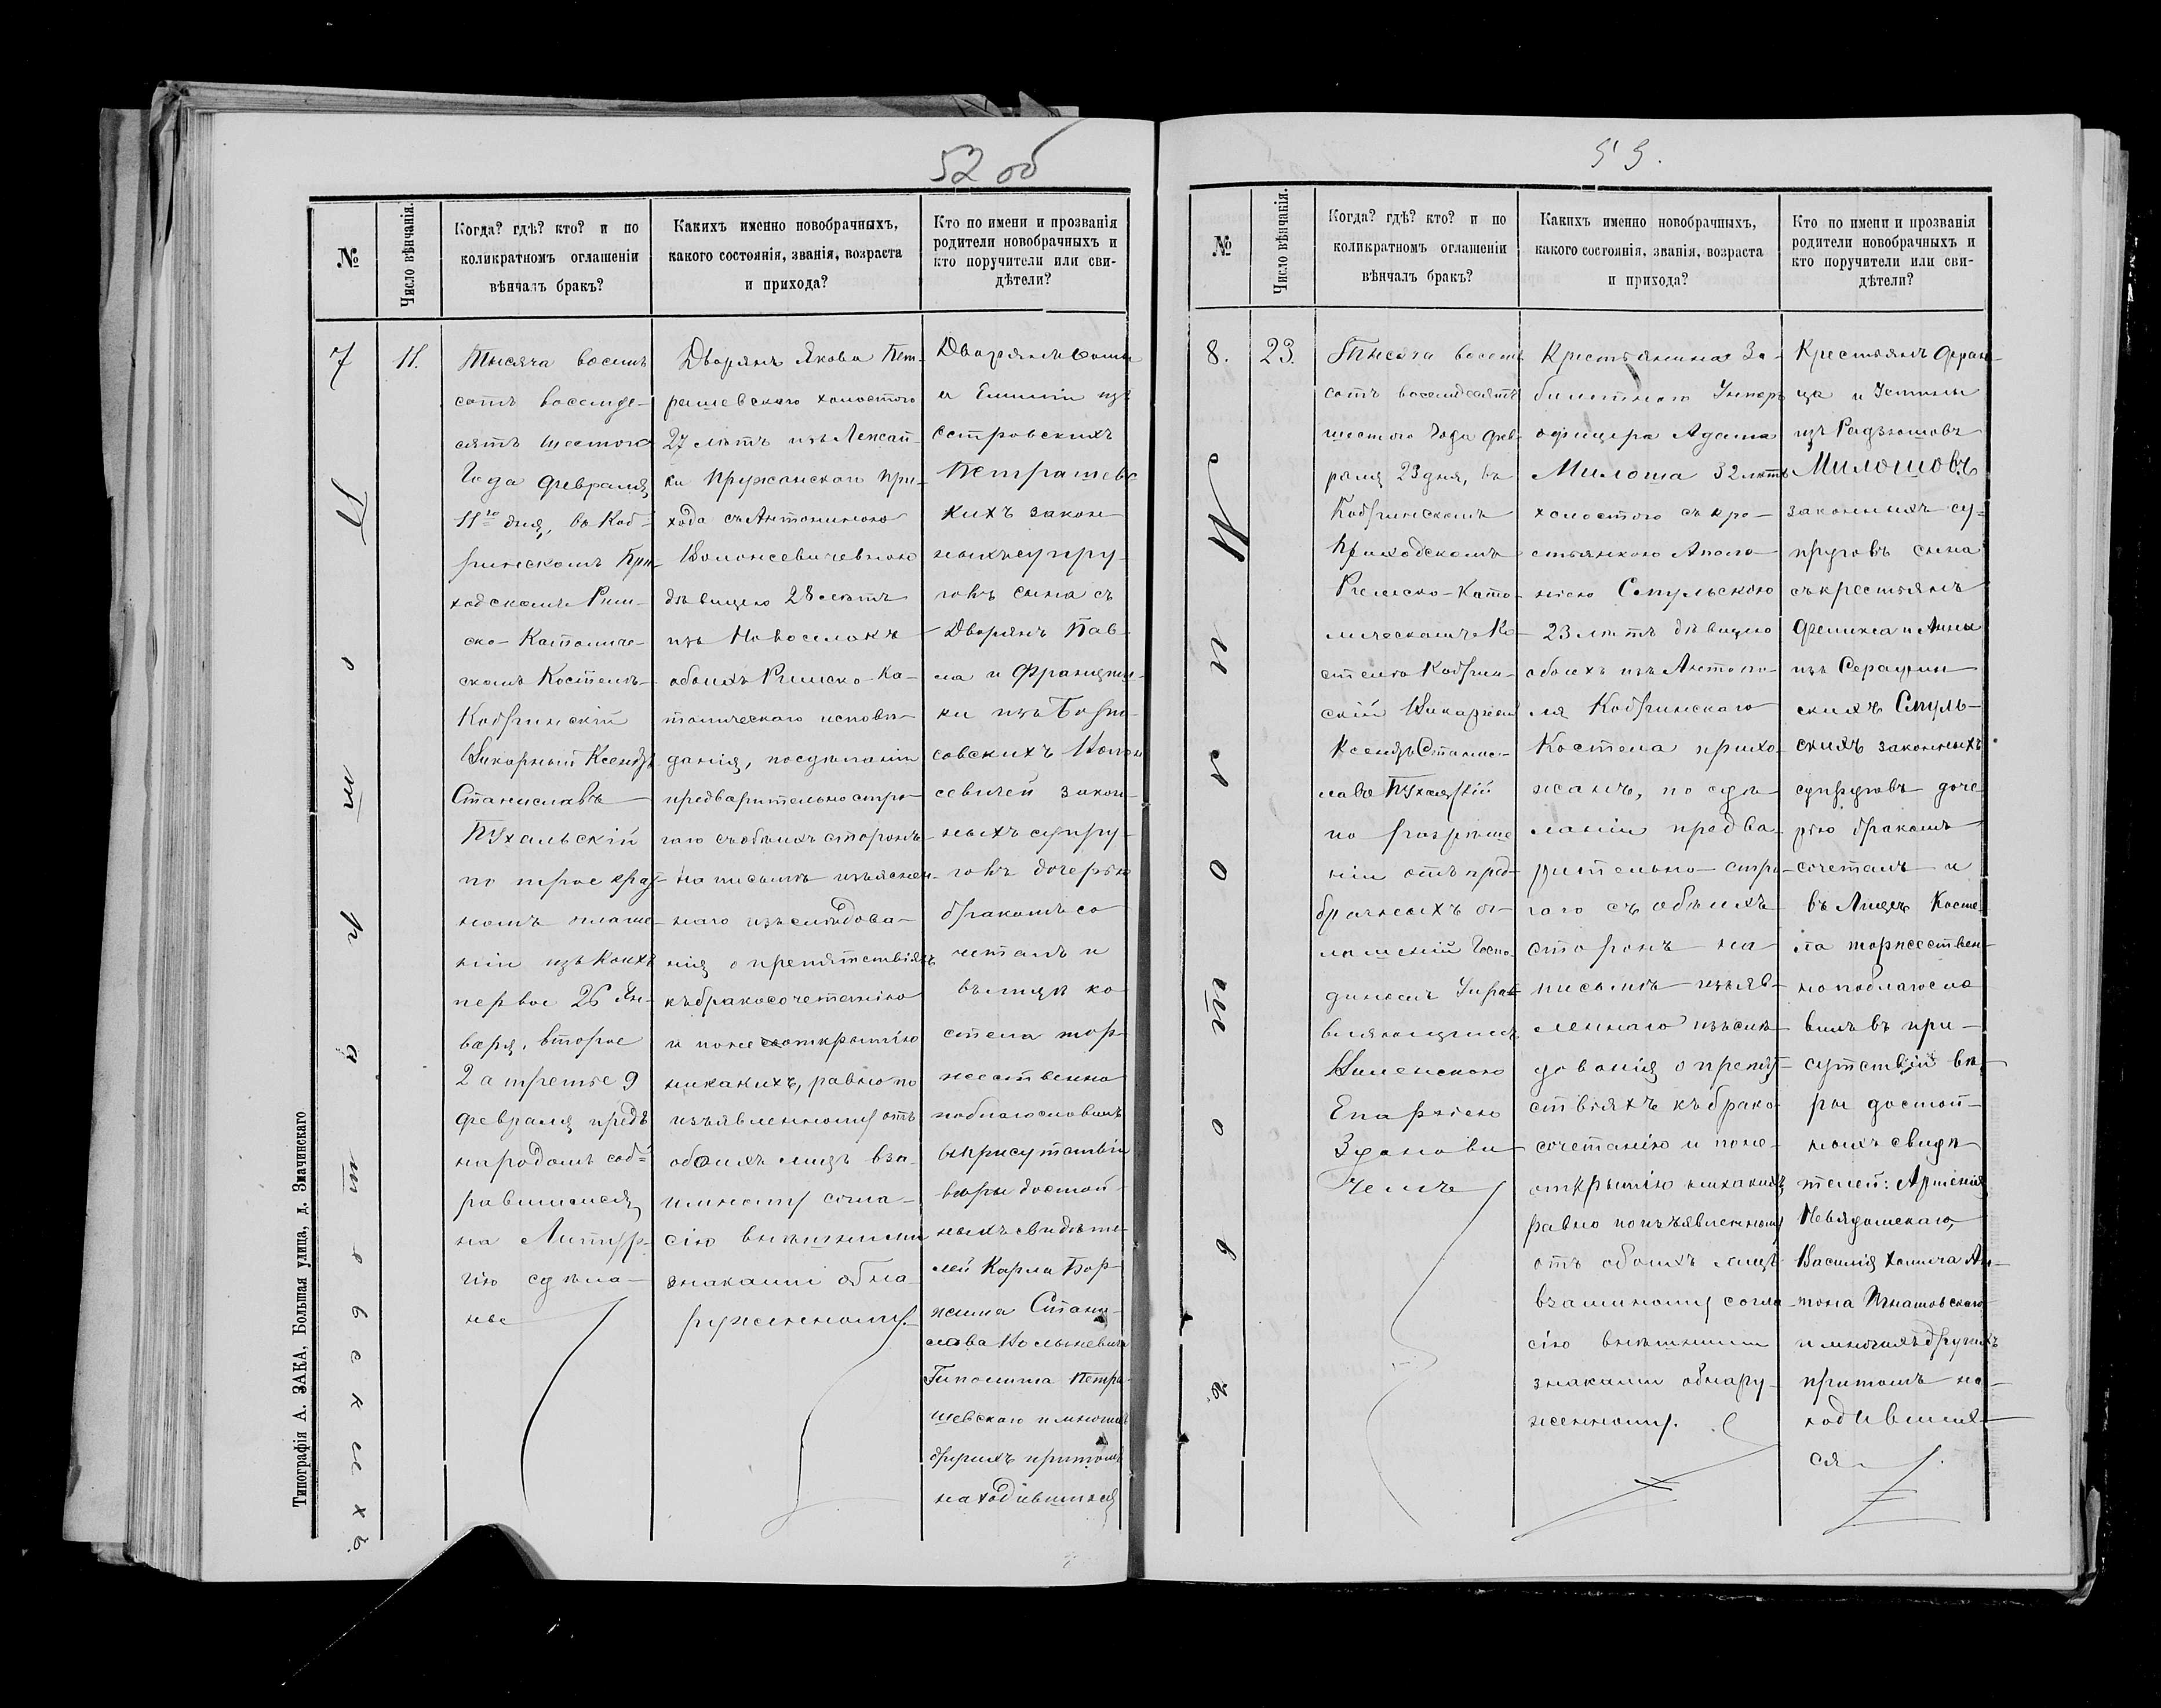 52 об
№
Число вѣнчанія.
Когда? гдѣ? кто? и по
коликратномъ оглашеніи
вѣнчалъ бракъ?
Какихъ именно новобрачныхъ,
какого состоянія, званія, возраста
и прихода?
Кто по имени и прозванія
родители новобрачныхъ и
кто поручители или сви-
дѣтели?
7
11.
Петрашевскихъ.
Тысяча восемь
сотъ восемде-
сятъ шестого
Года Февраля
11го дня, въ Коб-
ринскомъ При-
ходскомъ Рим-
ско-Католиче-
скомъ Костелѣ
Кобринскій
Викарный Ксендзъ
Станиславъ
Пухальскій
по трое крат-
номъ оглаше-
ніи изъ коихъ
первое 26 Ян-
варя, второе
2 а третье 9
Февраля предъ
народомъ соб-
равшимся
на Литур-
гію сдѣла-
ные
Дворянъ Якова Пет-
рашевскаго холостого
27 лѣтъ изъ
Пружанскаго при-
хода съ Антониною
дѣвицею 28 лѣтъ
изъ Новоселокъ
обоихъ Римско-Ка-
толическаго исповѣ-
данія, посдѣланіи
предварительно стро-
гаго съ обѣихъ сторонъ
на письмѣ изъяснен-
наго изъслѣдова-
нія о препятствіяхъ
къ бракосочетанію
и поне открытію
никакихъ, равно по
изъявленному отъ
обоихъ лицъ вза-
имному согла-
сію внѣшними
знаками обна-
руженному.
Дворянъ
и Емиліи изъ
Петрашевс
кихъ закон-
ныхъ супру-
говъ сына съ
Дворянъ Пав-
ла и Францишки
ки изъ
закон-
ныхъ супру-
говъ дочерью
бракомъ со
четалъ и
въ лицѣ ко
стела тор-
жественно
поблагословилъ
въ присутствіи
вѣры достой-
ныхъ свидѣте-
лей Карла Бор-
Стани-
слава
Гиполита Петра-
шевскаго и многихъ
другихъ притомъ
находившихся
Типографія А. ЗАКА, Большая улица, д. Змачинскаго
№
Число вѣнчанія.
Когда? гдѣ? кто? и по
коликратномъ оглашеніи
вѣнчалъ бракъ?
Какихъ именно новобрачныхъ,
какого состоянія, званія, возраста
и прихода?
Кто по имени и прозванія
родители новобрачныхъ и
кто поручители или сви-
дѣтели?
8.
23.
Милошовъ
Тысяча восемь
сотъ восемдесятъ
шестого Года Фев-
раля 23 дня, въ
Кобринскомъ
Приходскомъ
Римско-Като-
лическомъ Ко-
стелѣ Кобрин-
скій Викарный
Ксендзъ Станис-
лавъ Пухальскій
по разрѣше
ніи отъ пред-
брачныхъ ог-
лашеній Госпо-
диномъ Управ-
вляющимъ
Виленскою
Епархіею
Зданови-
чемъ
Крестьянина За-
билетнаго Унтеръ
офицера Адама
Милоша 32 лѣтъ
холостого съ кре-
стьянкою Аполо-
ніею Стульскою
23 лѣтъ дѣвицею
обоихъ изъ Антопо-
ля Кобринскаго
Костела прихо-
жанъ, по сдѣ-
ланіи предва-
рительно-стро-
гаго съ обѣихъ
сторонъ на
письмѣ изъяв-
леннаго изъслѣ-
дованія о препят-
ствіяхъ къ брако-
сочетанію и поне-
открытію никакихъ,
равно по изъявленному
отъ обоихъ лицъ
взаимному согла-
сію внѣшними
знаками обнару-
женному.
Крестьянъ Фран-
ца и Устины
изъ
Милошовъ
законныхъ су-
пруговъ сына
съ крестьянъ
Феликса и Анны
изъ Серафин-
скихъ Стуль-
скихъ законныхъ
супруговъ доче-
рью бракомъ
сочеталъ и
въ Лицѣ Косте-
ла торжествен-
но поблагосло
вилъ въ при-
сутствіи вѣ-
ры достой-
ныхъ свидѣ-
телей: Арсенія
Василія Хомича Ан-
тона Игнатовскаго
и многихъ другихъ
притомъ на-
ходивших-
ся